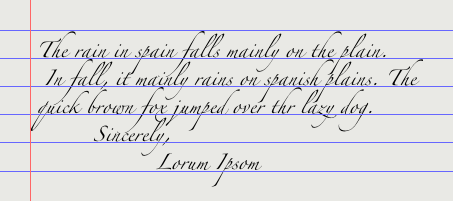 The rain in spain falls mainly on the plain.
In fall, it mainly rains on spanish plains. The
quick brown fox jumped over thr lazy dog.
Sincerely,
Lorum Ipsom